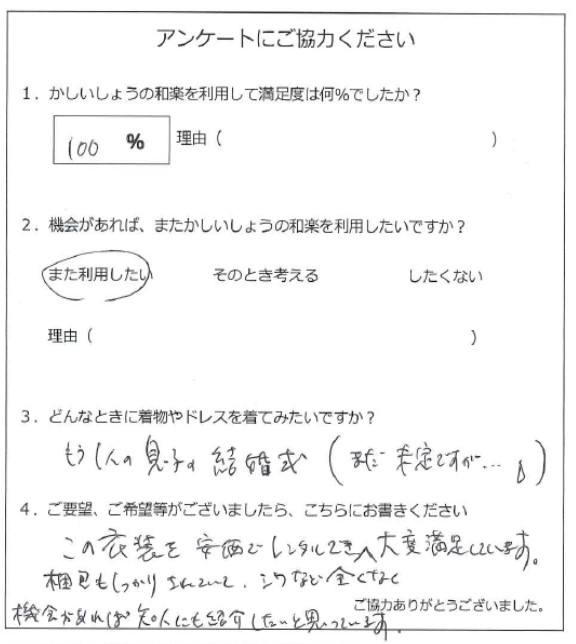 アンケートにご協力ください
1．かしいしょうの和楽を利用して満足度は何%でしたか？
100 % 理由（ ）
2．機会があれば、またかしいしょうの和楽を利用したいですか？
また利用したい そのとき考える したくない
理由（ ）
3．どんなときに着物やドレスを着てみたいですか？
もう1人の息子の結婚式（まだ未定ですが…）
4．ご要望、ご希望等がございましたら、こちらにお書きください
この衣装を安価でレンタルでき、大変満足しています。
梱包もしっかりされていて、シワなど全くなく
機会があれば知人にも紹介したいと思っています。
ご協力ありがとうございました。